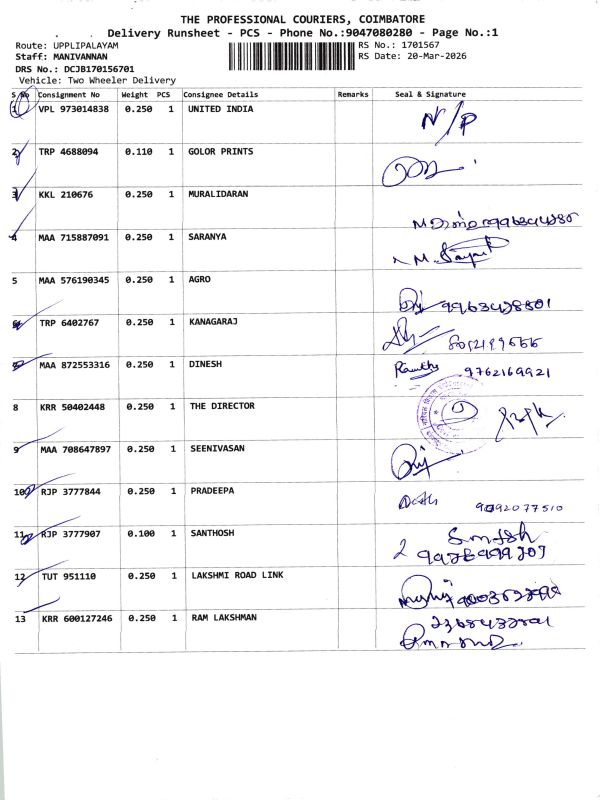 THE PROFESSIONAL COURIERS, COIMBATORE
Delivery Runsheet - PCS - Phone No.:9047080280 - Page No.:1
Route: UPPLIPALAYAM
RS No.: 1701567
Staff: MANIVANNAN
RS Date: 20-Mar-2026
DRS No.: DCJB170156701
Vehicle: Two Wheeler Delivery
S No Consignment No Weight PCS Consignee Details Remarks Seal & Signature
1 VPL 973014838 0.250 1 UNITED INDIA N/P
2 TRP 4688094 0.110 1 GOLOR PRINTS
3 KKL 210676 0.250 1 MURALIDARAN
4 MAA 715887091 0.250 1 SARANYA
5 MAA 576190345 0.250 1 AGRO
6 TRP 6402767 0.250 1 KANAGARAJ
7 MAA 872553316 0.250 1 DINESH 9762169921
8 KRR 50402448 0.250 1 THE DIRECTOR
9 MAA 708647897 0.250 1 SEENIVASAN
10 RJP 3777844 0.250 1 PRADEEPA 9092077510
11 RJP 3777907 0.100 1 SANTHOSH
12 TUT 951110 0.250 1 LAKSHMI ROAD LINK
13 KRR 600127246 0.250 1 RAM LAKSHMAN